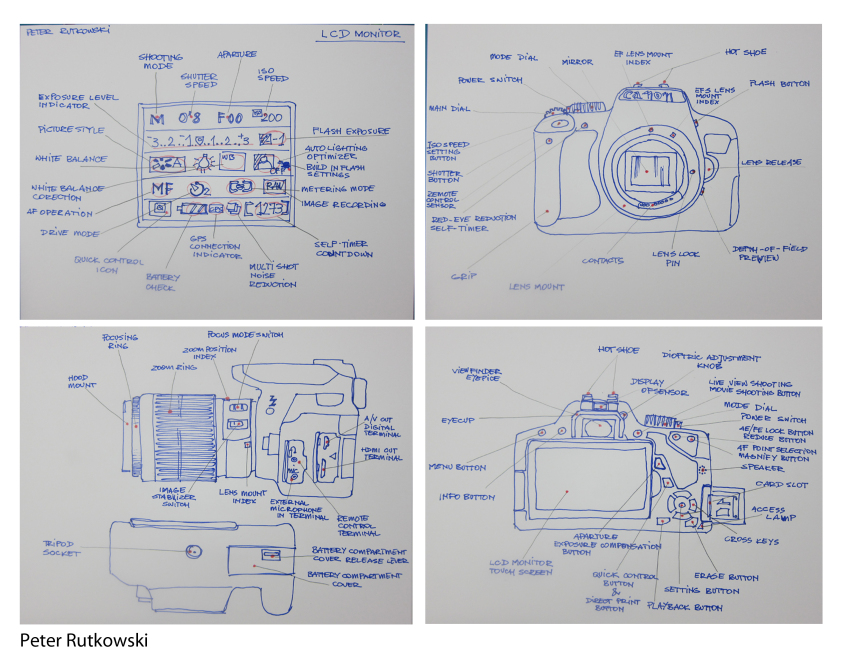 PETER RUTKOWSKI
LCD MONITOR
SHOOTING
MODE
APARTURE
SHUTTER
SPEED
ISO
SPEED
EXPOSURE LEVEL
INDICATOR
PICTURE STYLE
WHITE BALANCE
WHITE BALANCE
CORECTION
AF OPERATION
DRIVE MODE
QUICK CONTROL
ICON
BATTERY
CHECK
GPS
CONNECTION
INDICATOR
MULTI SHOT
NOISE
REDUCTION
SELF-TIMER
COUNTDOWN
IMAGE RECORDING
METERING MODE
BUILD IN FLASH
SETTINGS
AUTO LIGHTING
OPTIMIZER
FLASH EXPOSURE
M 0"8 F00 200
3..2..1..0..1..2..+3 -1
A WB OFF
MF 2 RAW
GPS [1273]
MODE DIAL
POWER SWITCH
MIRROR
EF LENS MOUNT
INDEX
HOT SHOE
EF-S LENS
MOUNT
INDEX
FLASH BUTTON
MAIN DIAL
CANON
ISO SPEED
SETTING
BUTTON
SHUTTER
BUTTON
REMOTE
CONTROL
SENSOR
RED-EYE REDUCTION
SELF-TIMER
GRIP
LENS MOUNT
CONTACTS
LENS LOCK
PIN
DEPTH-OF-FIELD
PREVIEW
LENS RELEASE
FOCUSING
RING
HOOD
MOUNT
ZOOM RING
ZOOM POSITION
INDEX
FOCUS MODE SWITCH
A/V OUT
DIGITAL
TERMINAL
HDMI OUT
TERMINAL
IMAGE
STABILIZER
SWITCH
LENS MOUNT
INDEX
EXTERNAL
MICROPHONE
IN TERMINAL
REMOTE
CONTROL
TERMINAL
TRIPOD
SOCKET
BATTERY COMPARTMENT
COVER RELEASE LEVER
BATTERY COMPARTMENT
COVER
HOT SHOE
VIEWFINDER
EYEPICE
DIOPTRIC ADJUSTMENT
KNOB
DISPLAY
OFSENSOR
LIVE VIEW SHOOTING
MOVIE SHOOTING BUTTON
MODE DIAL
POWER SWITCH
AE/FE LOCK BUTTON
REDUCE BUTTON
AF POINT SELECTION
MAGNIFY BUTTON
SPEAKER
CARD SLOT
ACCESS
LAMP
CROSS KEYS
EYECUP
MENU BUTTON
INFO BUTTON
LCD MONITOR
TOUCH SCREEN
APARATURE
EXPOSURE COMPENSATION
BUTTON
QUICK CONTROL
BUTTON
&
DIRECT PRINT
BUTTON
PLAYBACK BUTTON
SETTING BUTTON
ERASE BUTTON
Peter Rutkowski